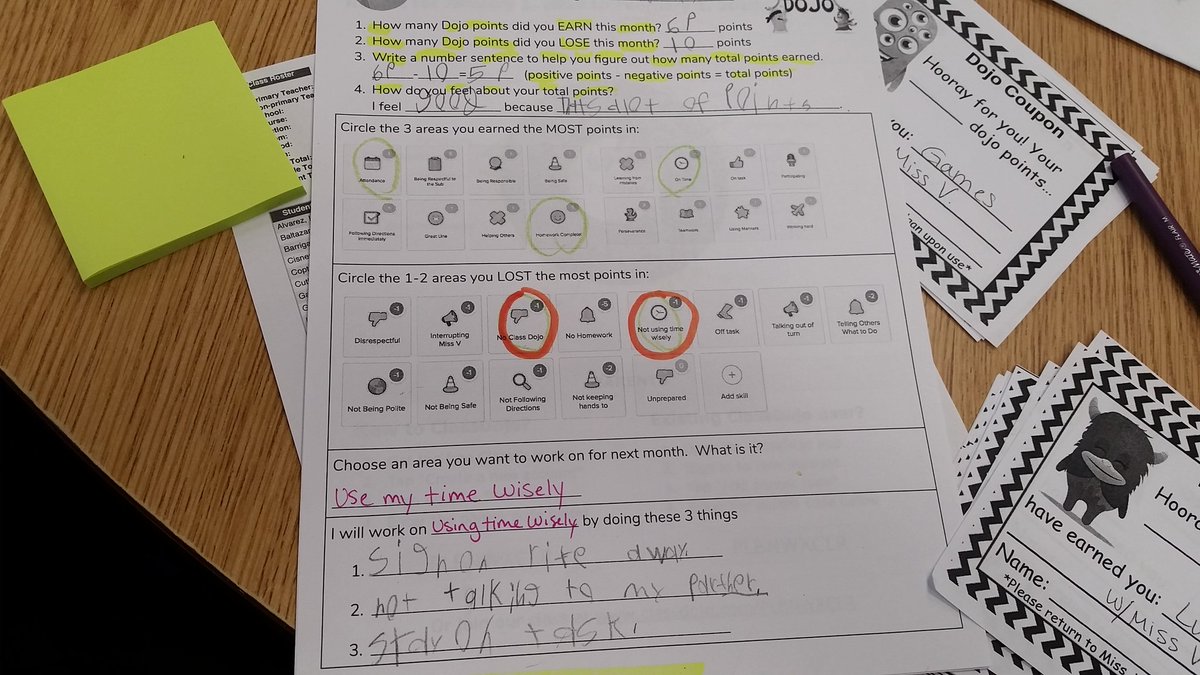 DOJO
1. How many Dojo points did you EARN this month? points
2. How many Dojo points did you LOSE this month? 10 points
3. Write a number sentence to help you figure out how many total points earned.
(positive points - negative points = total points)
4. How do you feel about your total points?
I feel good because of points.
Circle the 3 areas you earned the MOST points in:
Attendance Being Respectful to the Sub Being Responsible Being Safe Learning from mistakes On Time On task Participating
Following Directions Immediately Great Line Helping Others Homework Complete Perseverance Teamwork Using Manners Working hard
Circle the 1-2 areas you LOST the most points in:
-1 -1 -1 -5 -1 -1 -1 -2
Disrespectful Interrupting Miss V No Class Dojo No Homework Not using time wisely Off task Talking out of turn Telling Others What to Do
-1 -1 -1 -2 0
Not Being Polite Not Being Safe Not Following Directions Not keeping hands to Unprepared Add skill
Choose an area you want to work on for next month. What is it?
Use my time wisely
I will work on Using time wisely by doing these 3 things
1. sign on rite away.
2. not talking to my partner.
3. stay on task.
Class Roster
Primary Teacher:
Total:
Student
Alvarez,
Baltazar
Barriga
Dojo Coupon
Hooray for you! Your
dojo points...
you: Games
Miss V
upon use*
have earned you:
W/Miss V
Name:
*Please return to Miss